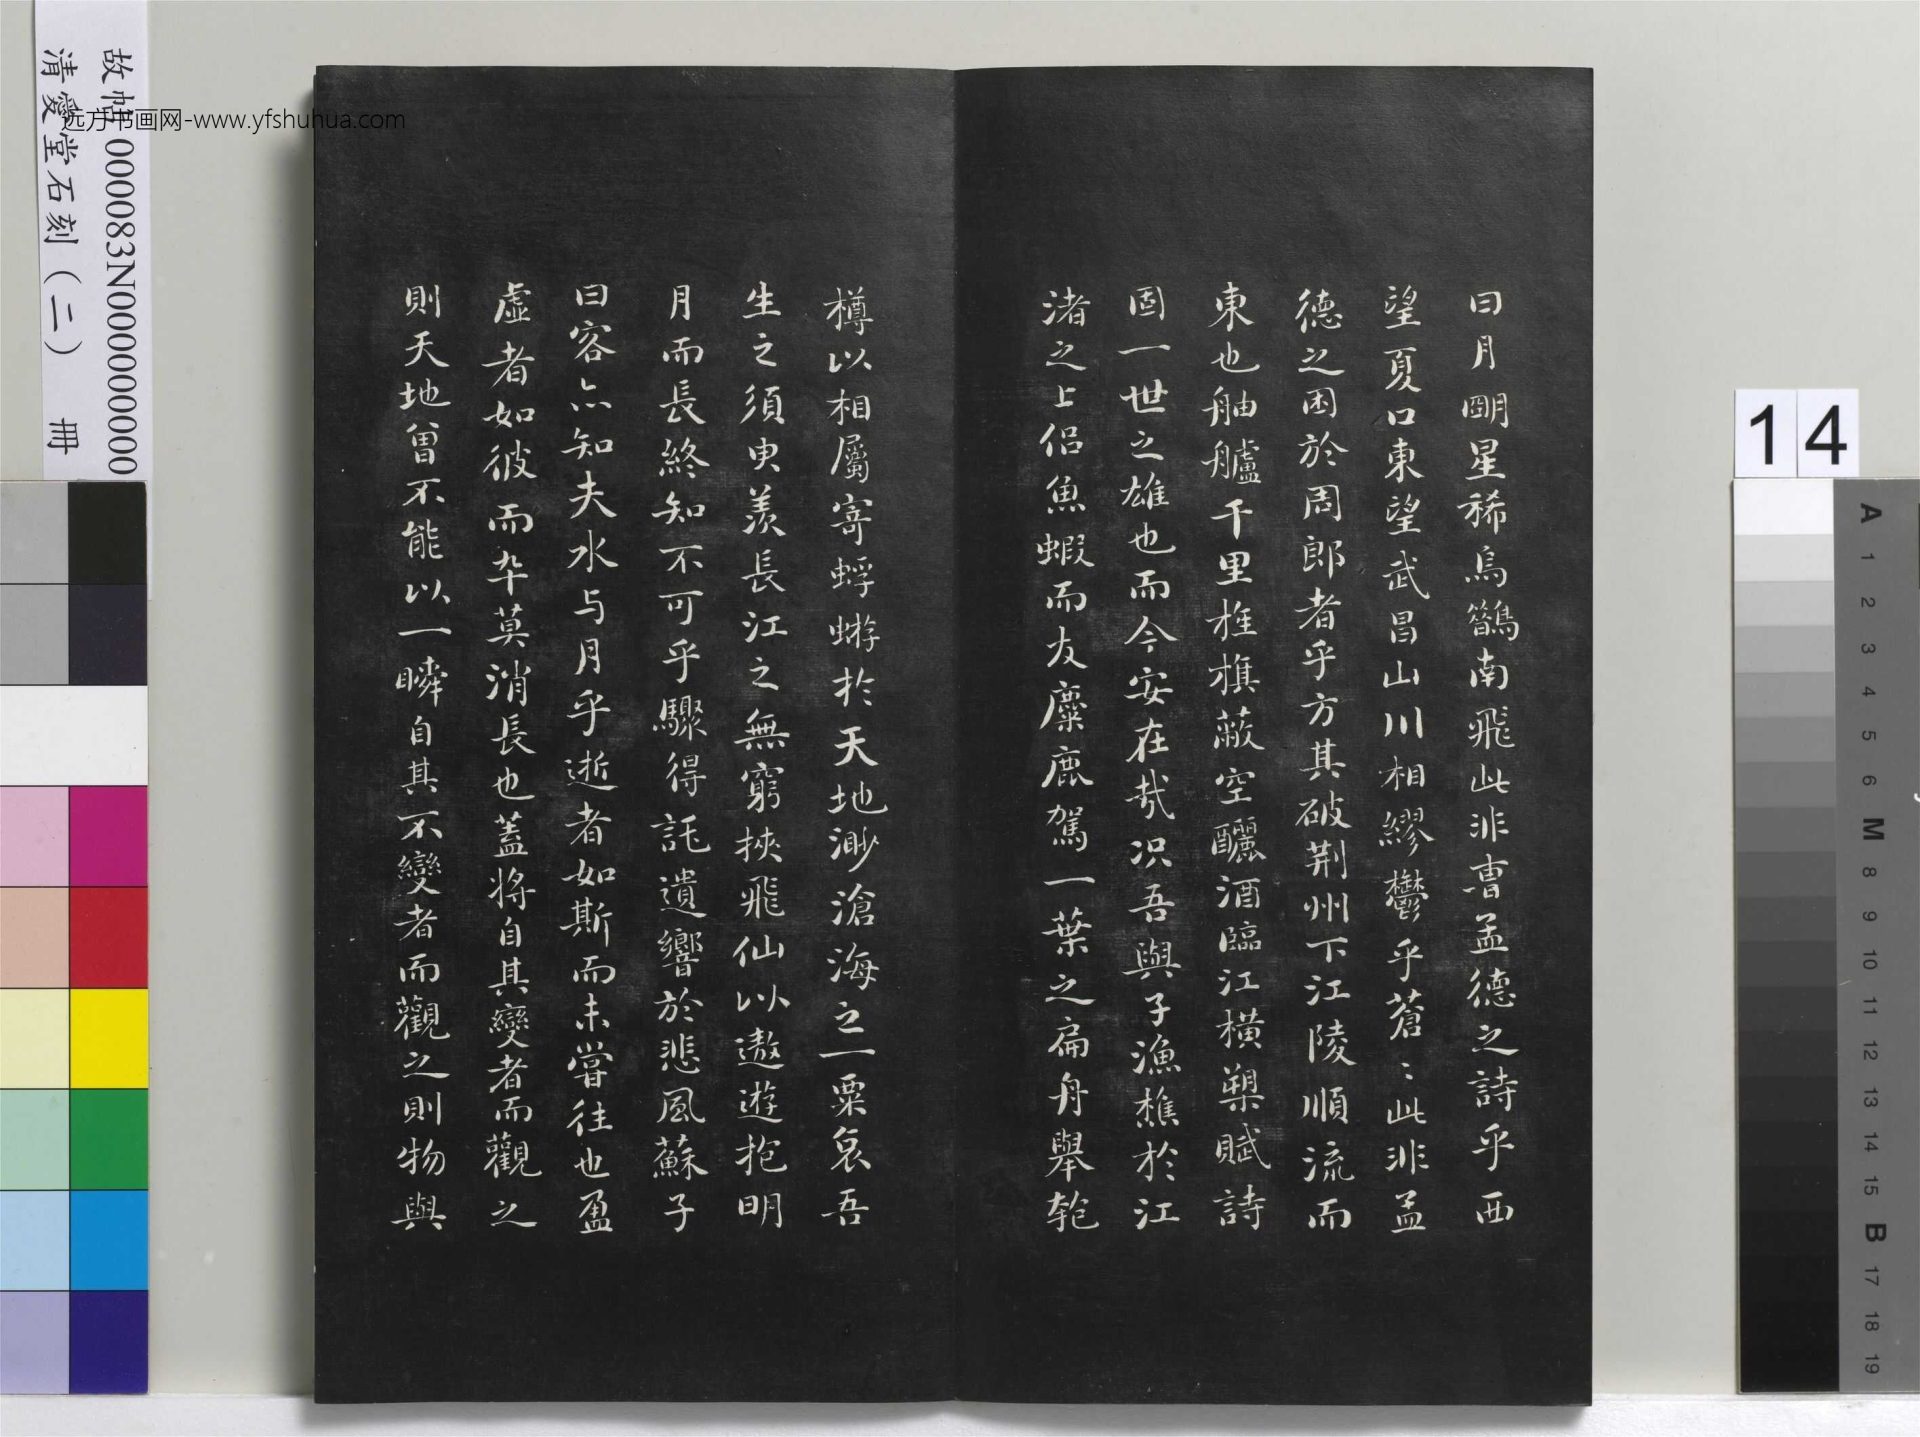 曰月朙星稀烏鵲南飛此非曹孟德之詩乎西
望夏口東望武昌山川相繆鬱乎蒼〻此非孟
德之困於周郎者乎方其破荆州下江陵順流而
東也舳艫千里旌旗蔽空釃酒臨江橫槊賦詩
固一世之雄也而今安在哉况吾與子漁樵於江
渚之上侶魚蝦而友麋鹿駕一葉之扁舟舉匏
樽以相屬寄蜉蝣於天地渺滄海之一粟哀吾
生之須臾羨長江之無窮挾飛仙以遨遊抱明
月而長終知不可乎驟得託遺響於悲風蘇子
曰客亦知夫水与月乎逝者如斯而未嘗往也盈
虛者如彼而卒莫消長也蓋將自其變者而觀之
則天地曾不能以一瞬自其不變者而觀之則物與
故帖 000083N000000000
清愛堂石刻（二） 冊
远方书画网-www.yfshuhua.com
14
A
1
2
3
4
5
6
M
8
9
10
11
12
13
14
15
B
17
18
19